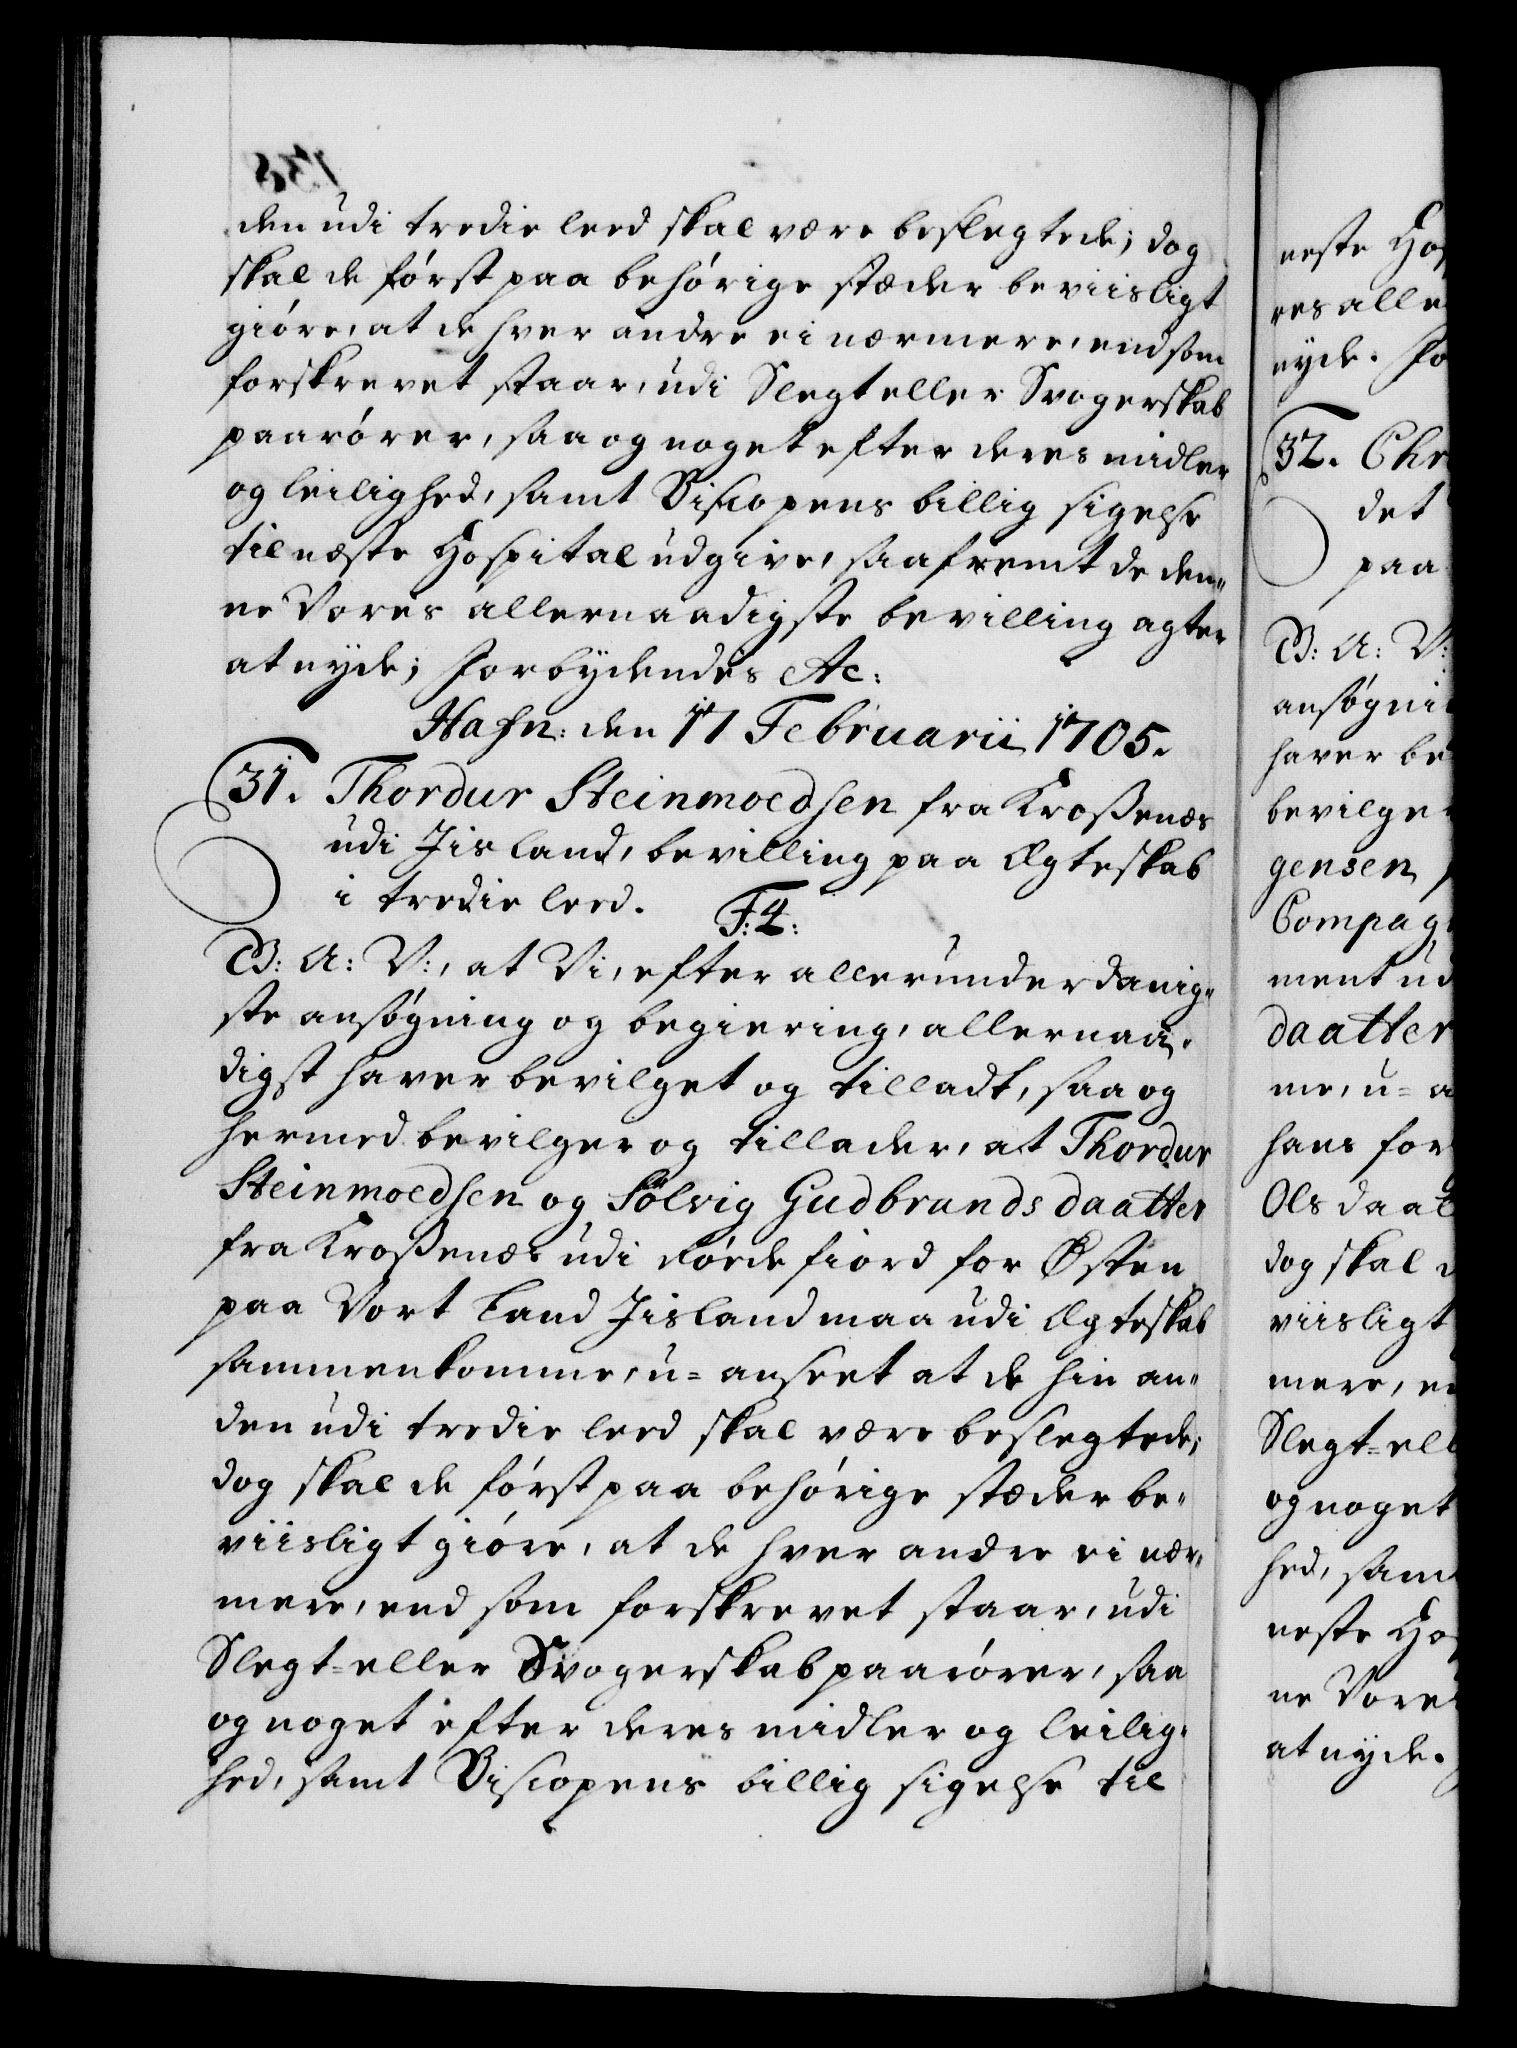 den udi tredie leed skal være beslegtede; dog
skal de först paa behörige stæder beviisligt
giöre, at de hver andre ei nærmere, end som
forskrevet staar, udi Slegt eller Svogerskab
paarörer, saa og noget efter deres midler
og leilighed, samt Biscopens billig sigelse
til næste Hospital udgive, saafremt de den„
ne Vores allernaadigste bevilling agter
at nyde; Forbydendes &c:
Hafn: den 17 Februarii 1705.
31. Thordur Steinmoedsen fra Kroßenæs
udi Jisland, bevilling paa Ægteskab
i tredie leed.
F: 4:
B: A: V:, at Vi, efter allerunderdanig„
ste ansøgning og begiering, allernaa„
digst haver bevilget og tilladt, saa og
hermed bevilger og tillader, at Thordur
Steinmoedsen og Sölvig Gudbrands daatter
fra Kroßenæs udi Röde fiord for Østen
paa Vort Land Jisland maa udi Ægteskab
sammenkomme, u=anseet at de hin an„
den udi tredie leed skal være beslegtede;
dog skal de först paa behörige stæder be„
viisligt giöre, at de hver andre ei nær„
mere, end som forskrevet staar, udi
Slegt=eller Svogerskab paarörer, saa
og noget efter deres midler og leilig„
hed, samt Biscopens billig sigelse til
neste Hos
res alle
nyde. Fo
32. Chr
det
paa
B: A: V:
ansøgni
haver be
bevilge
gensen
Compag
ment ud
daatter
me, u= a
hans for
Ols daat
dog skal d
viisligt
mere, en
Slegt=ell
og noget
hed, sam
neste Hos
ne Vore
at nyde.